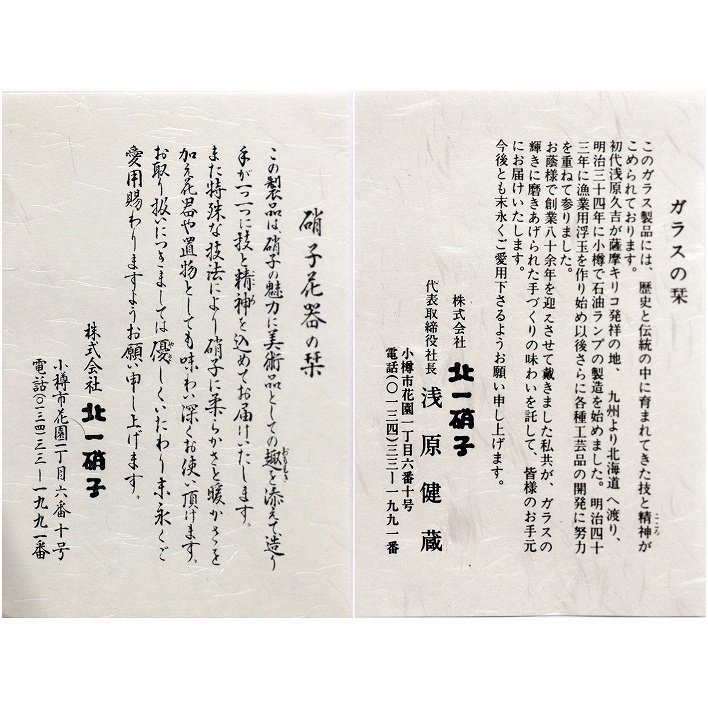 ガラスの栞
このガラス製品には、歴史と伝統の中に育まれてきた技と精神が
こころ
こめられております。
初代浅原久吉が薩摩キリコ発祥の地、九州より北海道へ渡り、
明治三十四年に小樽で石油ランプの製造を始めました。明治四十
三年に漁業用浮玉を作り始め以後さらに各種工芸品の開発に努力
を重ねて参りました。
お蔭様で創業八十余年を迎えさせて戴きました私共が、ガラスの
輝きに磨きあげられた手づくりの味わいを託して、皆様のお手元
にお届けいたします。
今後とも末永くご愛用下さるようお願い申し上げます。
株式会社 北一硝子
代表取締役社長 浅原健蔵
小樽市花園一丁目六番十号
電話(〇一三四)三三ー一九九一番
硝子花器の栞
この製品は、硝子の魅力に美術品としての趣を添えて造り
おもむき
手が一つ一つに技と精神を込めてお届けいたします。
また特殊な技法により硝子に柔らかさと暖かさを
加え花器や置物としても味わい深くお使い頂けます。
お取り扱いにつきましては優しくいたわり末永くご
愛用賜わりますようお願い申し上げます。
株式会社 北一硝子
小樽市花園一丁目六番十号
電話(〇一三四)三三ー一九九一番